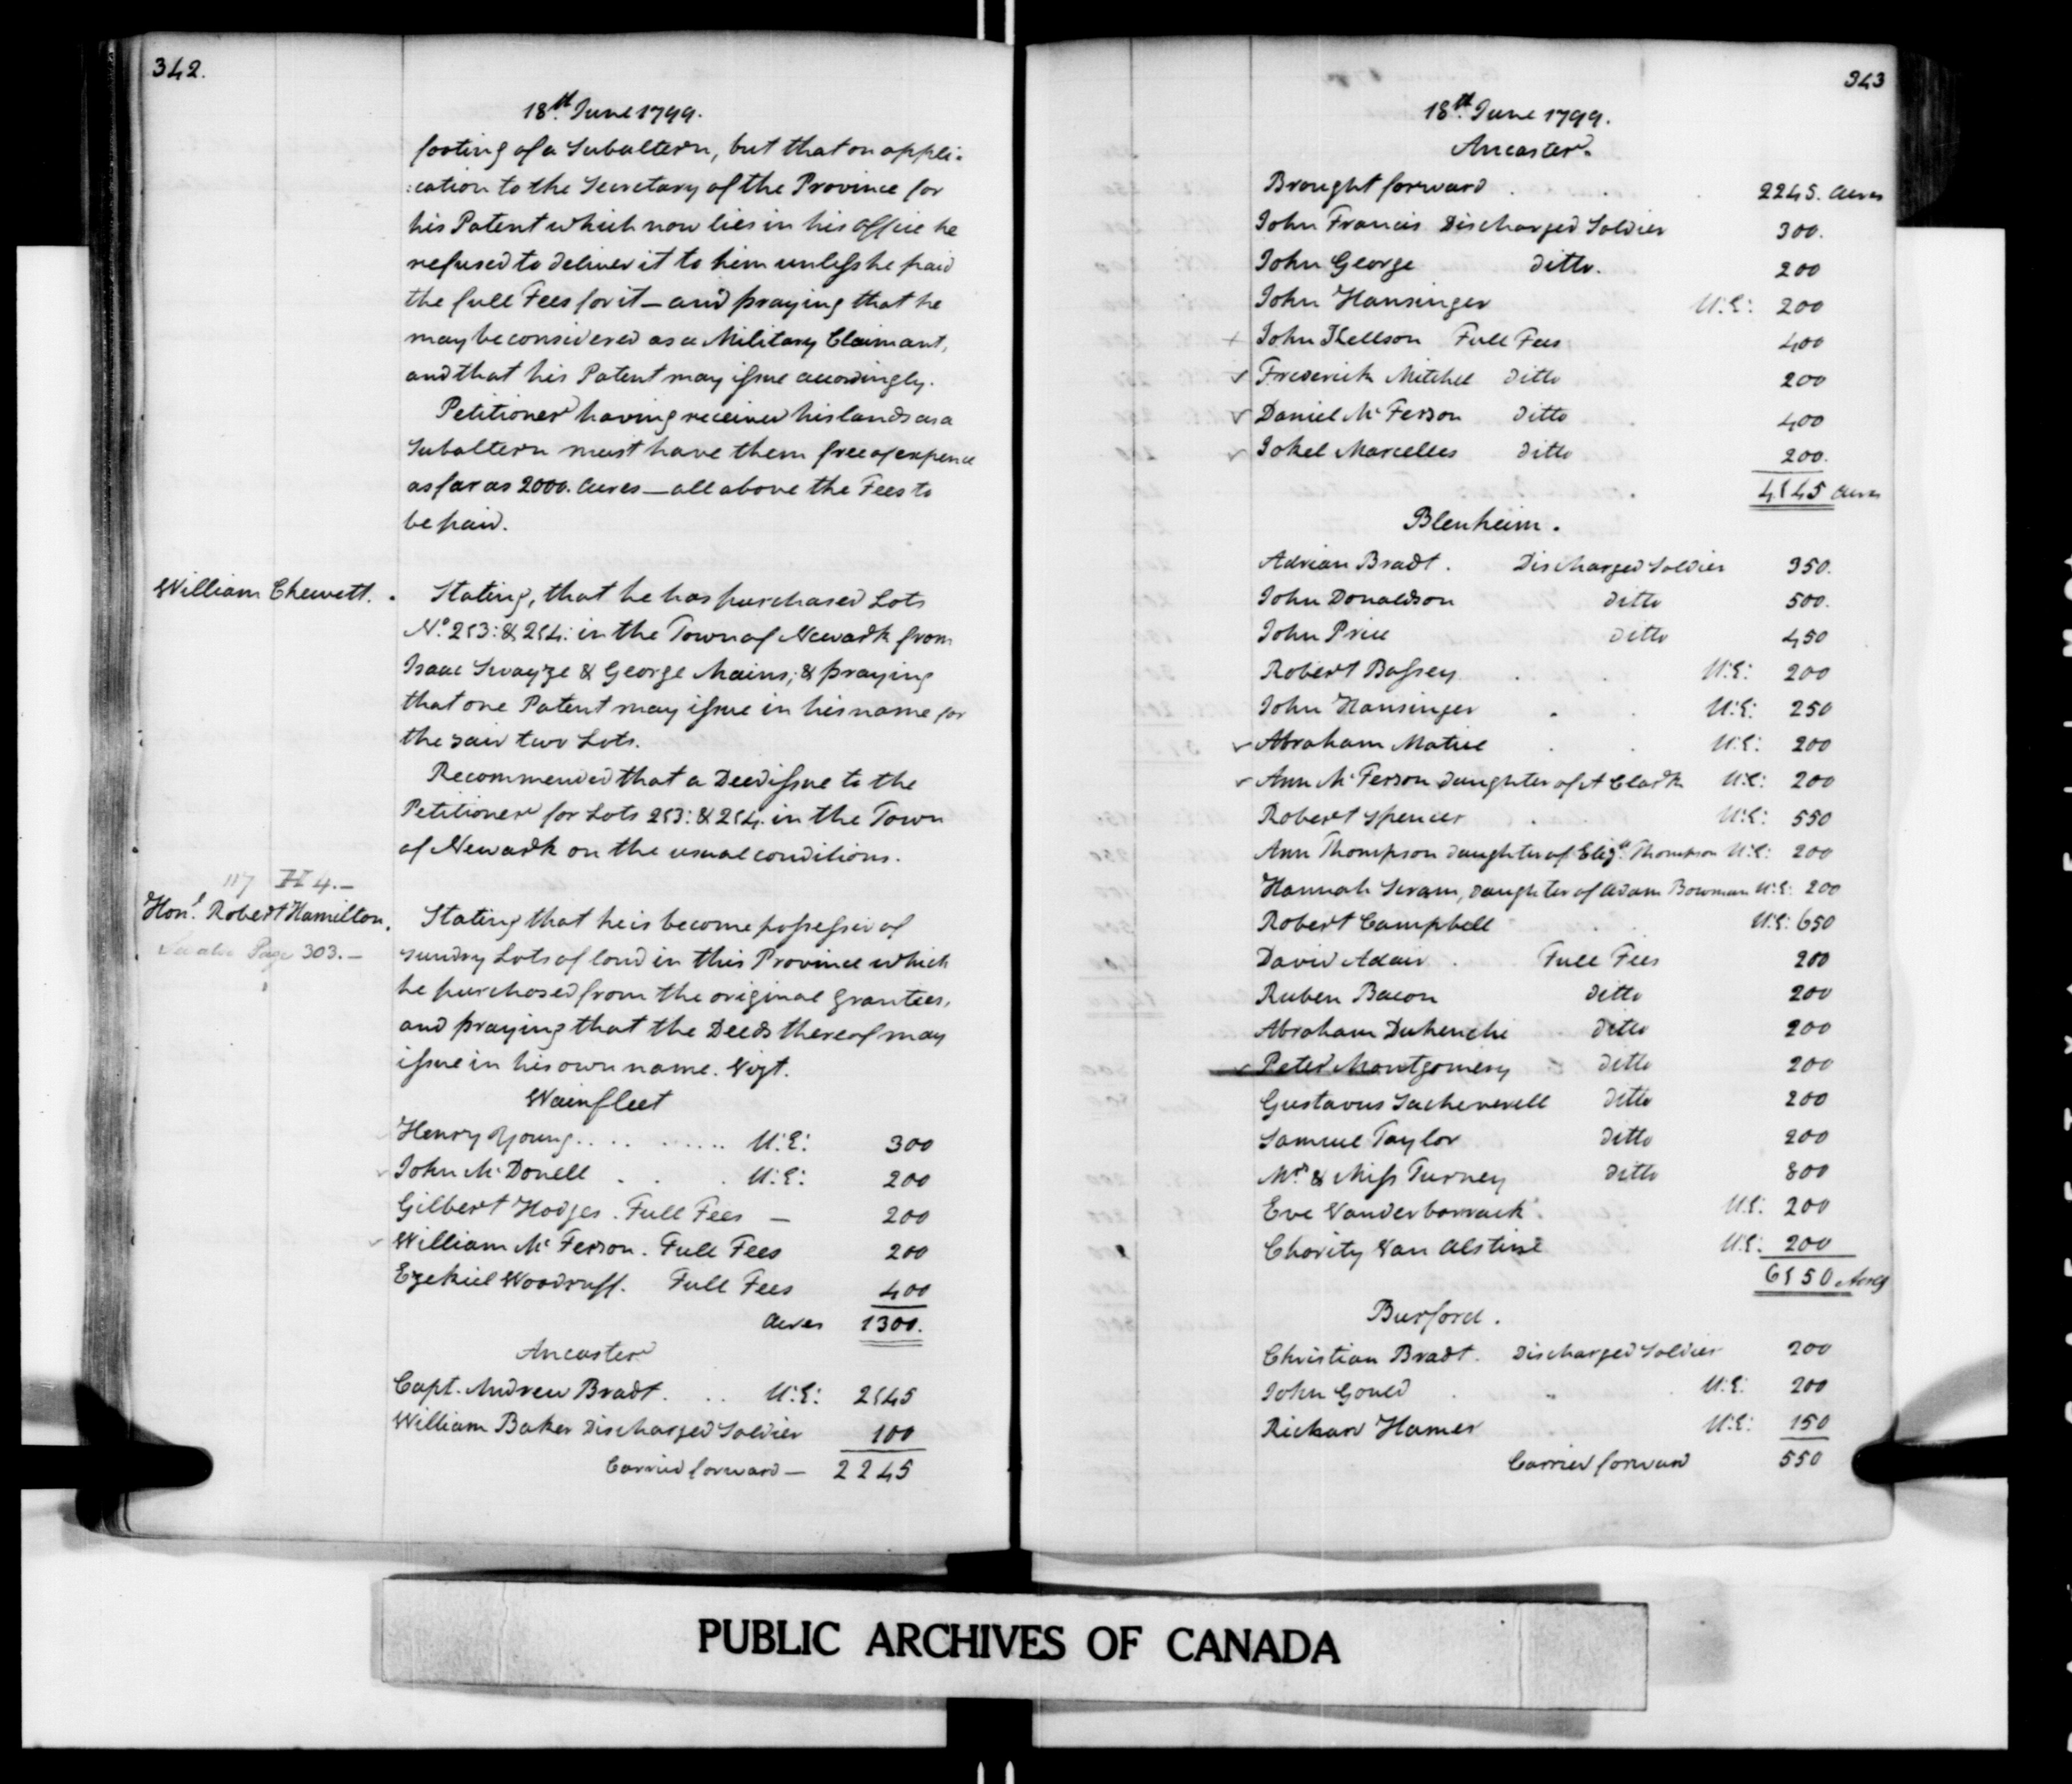 342.
18th June 1799.
footing of a Subaltern, but that on appli-
:cation to the Secretary of the Province for
his Patent which now lies in his Office he
refused to deliver it to him unless he paid
the full Fees for it — and praying that he
may be considered as a Military Claimant,
and that his Patent may issue accordingly.
Petitioner having received his lands as a
Subaltern must have them free of expence
as far as 2000. Acres — all above the Fees to
be paid.
William Chewett. Stating, that he has purchased Lots
No. 253: & 254: in the Town of Newark from
Isaac Swayze & George Mains; & praying
that one Patent may issue in his name for
the said two Lots.
Recommended that a Deed issue to the
Petitioner for Lots 253: & 254. in the Town
of Newark on the usual conditions.
117 H 4.—
Honl. Robert Hamilton. Stating that he is become possessed of
See also Page 303.— sundry Lots of land in this Province which
he purchased from the original Grantees,
and praying that the Deeds thereof may
issue in his own name. Vizt.
Wainfleet
Henry Young . . . . . . . . U:E: 300
John McDonell . . . U:E: 200
Gilbert Hodges. Full Fees — 200
William McFerson. Full Fees 200
Ezekiel Woodruff. Full Fees 400
Acres 1300.
Ancaster
Capt. Andrew Bradt. . . U:E: 2145
William Baker Discharged Soldier 100
Carried forward — 2245
343
18th June 1799.
Ancaster.
Brought forward . . . 2245. Acres
John Francis Discharged Soldier 300.
John George ditto. 200
John Hansinger U:E: 200
+ John Shellson Full Fees 400
Frederick Mitchel ditto 200
Daniel McFerson ditto 400
Jokel Marcelles ditto 200.
4145 Acres
Blenheim.
Adrian Bradt. Discharged Soldier 350.
John Donaldson ditto 500.
John Price ditto 450
Robert Bassey . . U:E: 200
John Hansinger . . U:E: 250
Abraham Matice . . U:E: 200
Ann McFerson daughter of A Clark U:E: 200
Robert Spencer . . U:E: 550
Ann Thompson daughter of Elizth. Thompson U:E: 200
Hannah Scram, daughter of Adam Bowman U:E: 200
Robert Campbell U:E: 650
David Adair . Full Fees 200
Ruben Bacon ditto 200
Abraham ditto 200
Peter Montgomery ditto 200
Gustavus Sacheverell ditto 200
Samuel Taylor ditto 200
Mrs & Miss Turney ditto 800
Eve Vanderbarrack. U:E: 200
Charity Van Alstine U:E: 200
6150 Acres
Burford.
Christian Bradt. Discharged Soldier 200
John Gould . . . U:E: 200
Richard Hamer U:E: 150
Carried forward 550
PUBLIC ARCHIVES OF CANADA